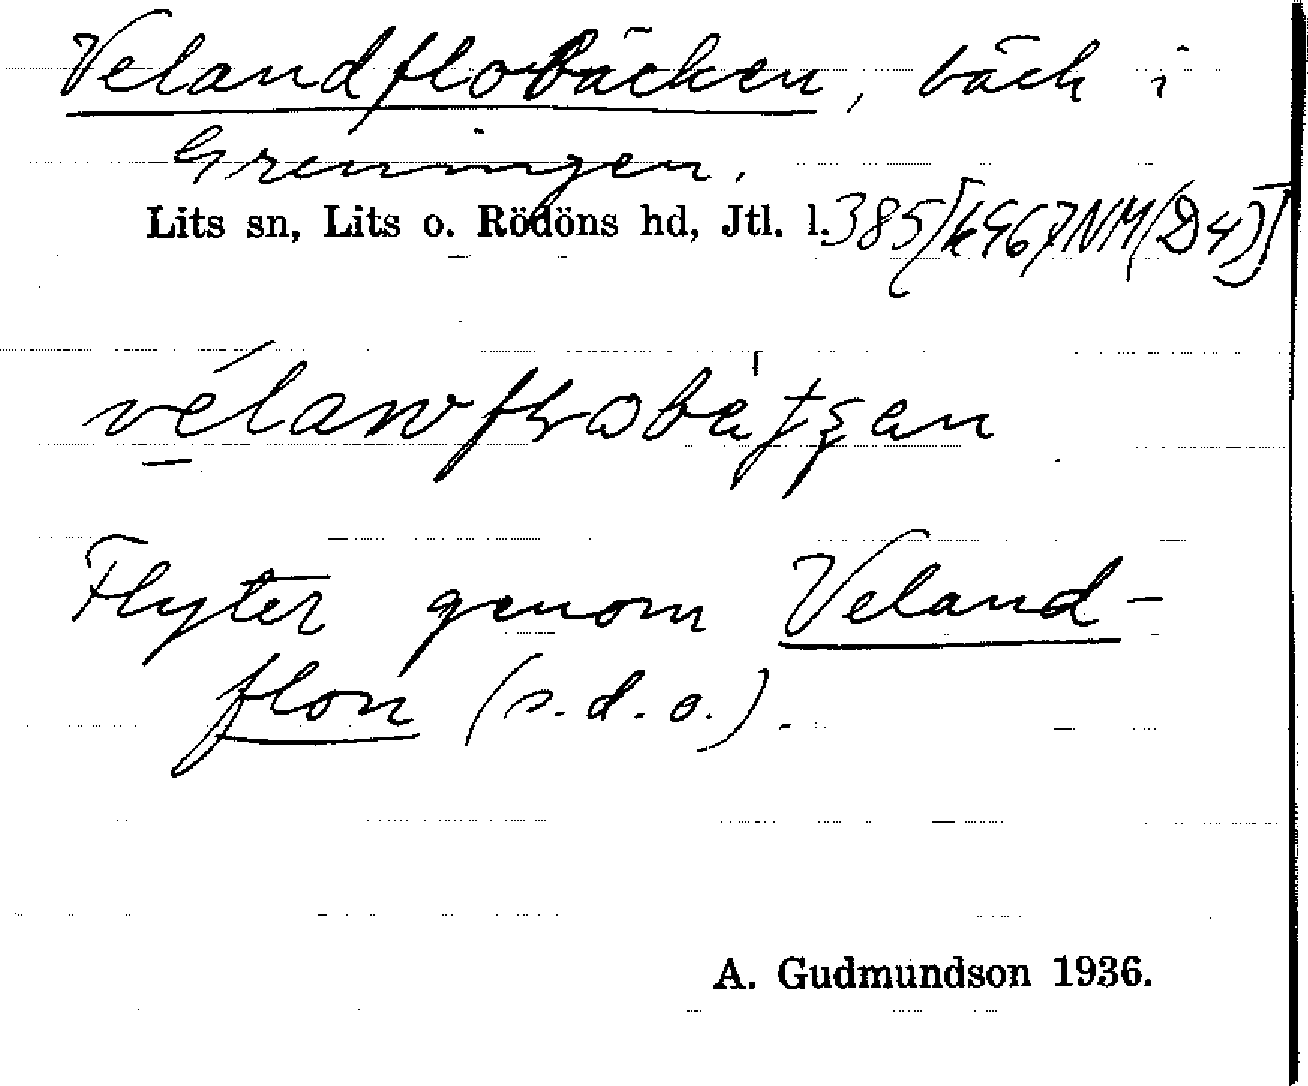 Velandflobäcken, bäck i
Greningen.
Lits sn, Lits o. Rödöns hd, Jtl. l. 385
Flyter genom Veland-
flon (s.d.o.).
A. Gudmundson 1936.